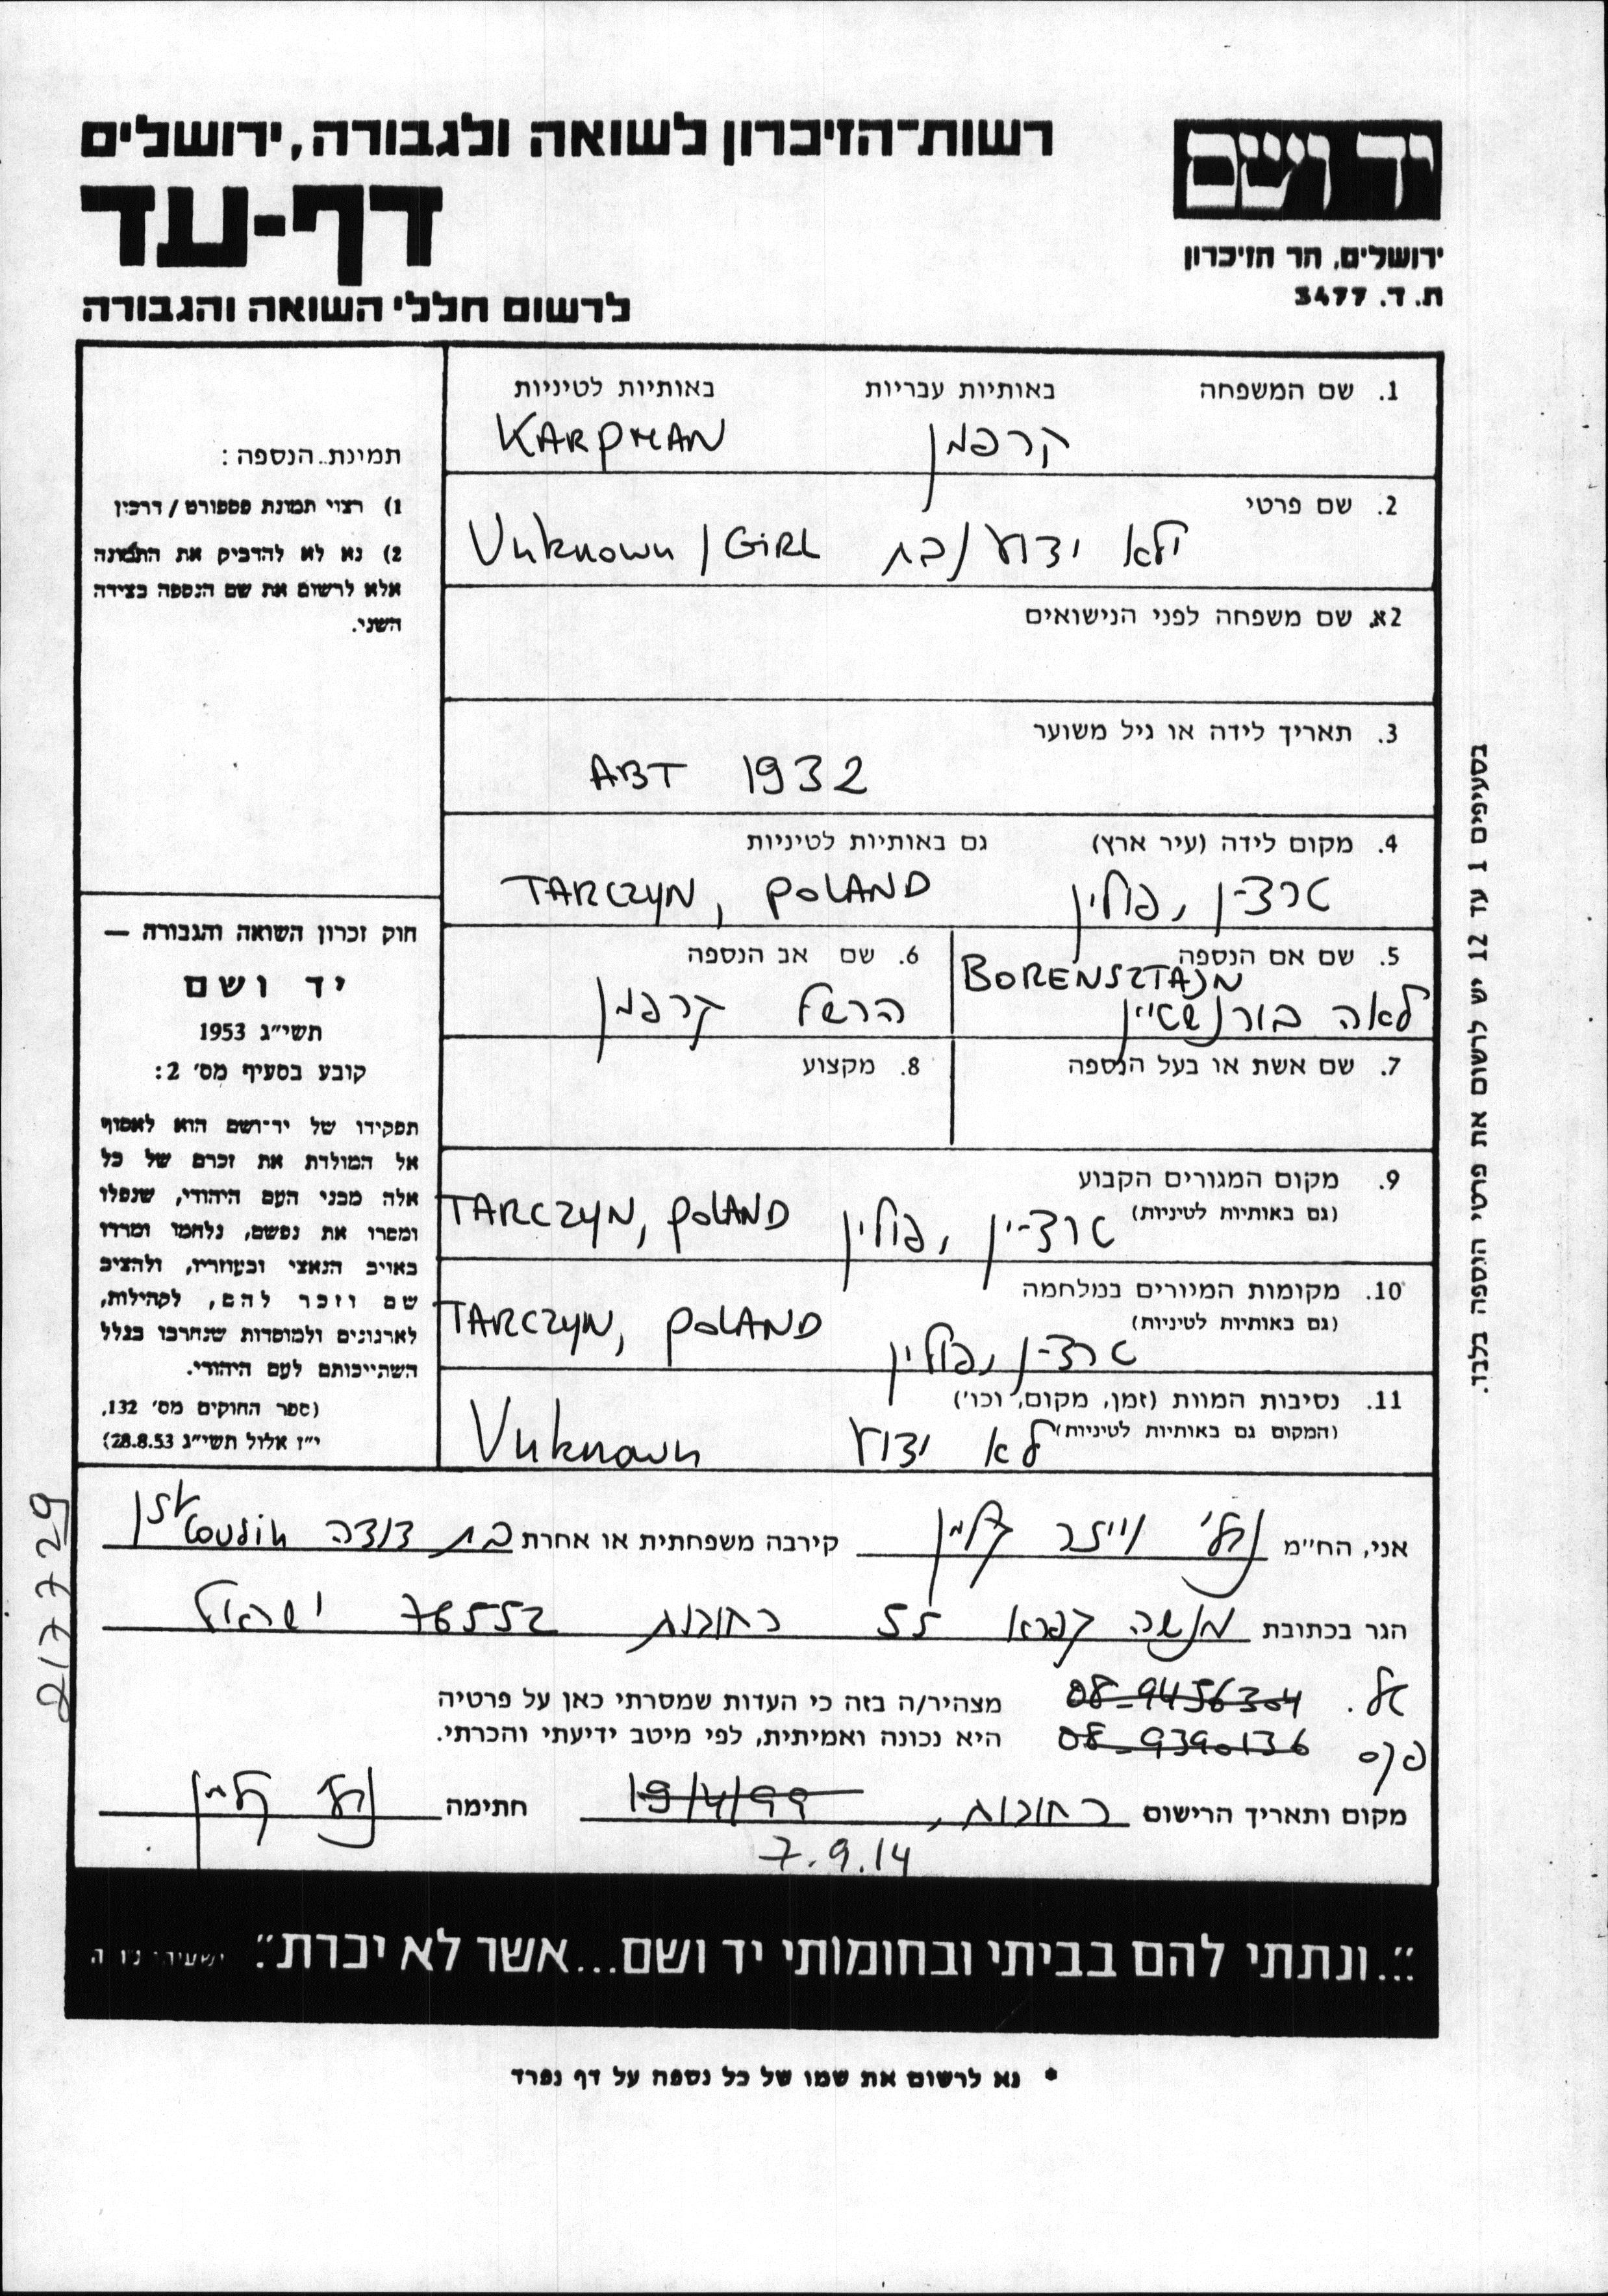 רשות־הזיכרון לשואה ולגבורה, ירושלים
דף-עד
לרשום חללי השואה והגבורה
יד ושם
ירושלים, הר הזיכרון
ת. ד. 3477
1. שם המשפחה באותיות עבריות באותיות לטיניות
קרפמן KARPMAN
2. שם פרטי
לא ידוע / בת Unknown / GIRL
2א. שם משפחה לפני הנישואים
3. תאריך לידה או גיל משוער
ABT 1932
4. מקום לידה (עיר ארץ) גם באותיות לטיניות
טרצ'ן, פולין TARCZYN, POLAND
5. שם אם הנספה
BORENSZTAJN
לאה בורנשטיין
6. שם אב הנספה
הרשל קרפמן
7. שם אשת או בעל הנספה
8. מקצוע
9. מקום המגורים הקבוע
(גם באותיות לטיניות) טרצ'ין, פולין TARCZYN, POLAND
10. מקומות המגורים במלחמה
(גם באותיות לטיניות)
טרצ'ן, פולין TARCZYN, POLAND
11. נסיבות המוות (זמן, מקום, וכו')
(המקום גם באותיות לטיניות) לא ידוע Unknown
תמונת הנספה:
1) רצוי תמונת פספורט / דרכון
2) נא לא להדביק את התמונה
אלא לרשום את שם הנספה בצידה
השני.
חוק זכרון השואה והגבורה —
יד ושם
תשי"ג 1953
קובע בסעיף מס' 2:
תפקידו של יד־ושם הוא לאסוף
אל המולדת את זכרם של כל
אלה מבני העם היהודי, שנפלו
ומסרו את נפשם, נלחמו ומרדו
באויב הנאצי ובעוזריו, ולהציב
שם וזכר להם, לקהילות,
לארגונים ולמוסדות שנחרבו בגלל
השתייכותם לעם היהודי.
(ספר החוקים מס' 132,
י"ז אלול תשי"ג 28.8.53)
בסעיפים 1 עד 12 יש לרשום את פרטי הנספה בלבד.
אני, הח"מ נלי וייזר קליין קירבה משפחתית או אחרת בת דודה 1st Cousin
הגר בכתובת מנשה קפרא 55 רחובות 76552 ישראל
08-9456304
מצהיר/ה בזה כי העדות שמסרתי כאן על פרטיה
פקס 08-9390136
היא נכונה ואמיתית, לפי מיטב ידיעתי והכרתי.
מקום ותאריך הרישום רחובות, 19/4/99 חתימה נלי קליין
7.9.14
217729
"...ונתתי להם בביתי ובחומותי יד ושם...אשר לא יכרת". ישעיהו נו ה
* נא לרשום את שמו של כל נספה על דף נפרד